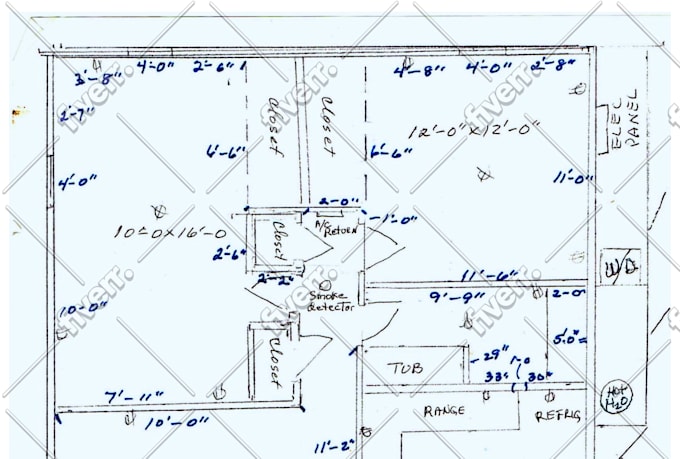 3'-8"
4'-0"
2'-6"
4'-8"
4'-0"
2'-8"
2'-7"
Closet
Closet
12'-0" x 12'-0"
ELEC
PANEL
6'-6"
6'-6"
4'-0"
11'-0"
2'-0"
10'-0 x 16'-0
Closet
A/C
RETURN
1'-0"
2'-6"
2'-2"
W/D
11'-6"
Smoke
detector
9'-9"
2-0"
10-0"
5'.0"
Closet
TUB
29"
33"
30"
7'-11"
RANGE
REFRIG
HOT
H2O
10'-0"
11'-2"
fiverr.
fiverr.
fiverr.
fiverr.
fiverr.
fiverr.